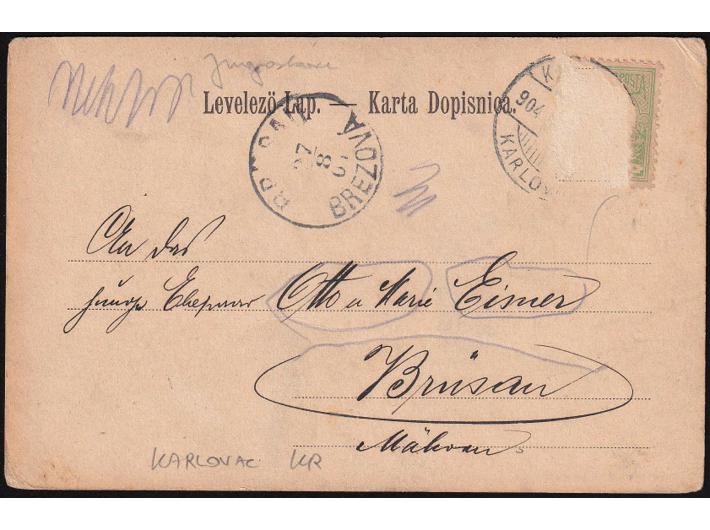 Jugoslavie
Levelező Lap. — Karta Dopisnica.
904
KARLOV
POSTA
27
8
BREZOVÁ
An das
junge Ehepaar Otto u Marie Eisner
Brüsau
Mähren
KARLOVAC KR